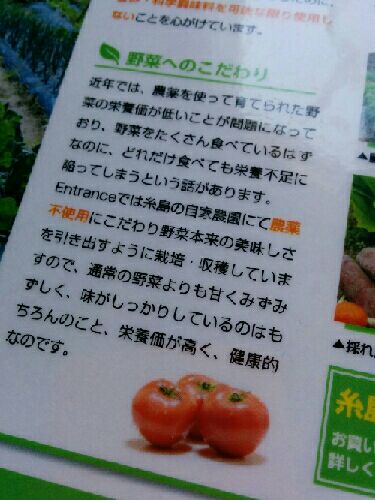 化学調味料を可能な限り使用し
ないことを心がけています。
野菜へのこだわり
近年では、農薬を使って育てられた野
菜の栄養価が低いことが問題になって
おり、野菜をたくさん食べているはず
なのに、どれだけ食べても栄養不足に
陥ってしまうという話があります。
Entranceでは糸島の自家農園にて農薬
不使用にこだわり野菜本来の美味しさ
を引き出すように栽培・収穫していま
すので、通常の野菜よりも甘くみずみ
ずしく、味がしっかりしているのはも
ちろんのこと、栄養価が高く、健康的
なのです。
▲採れ
糸島
お買い
詳しく